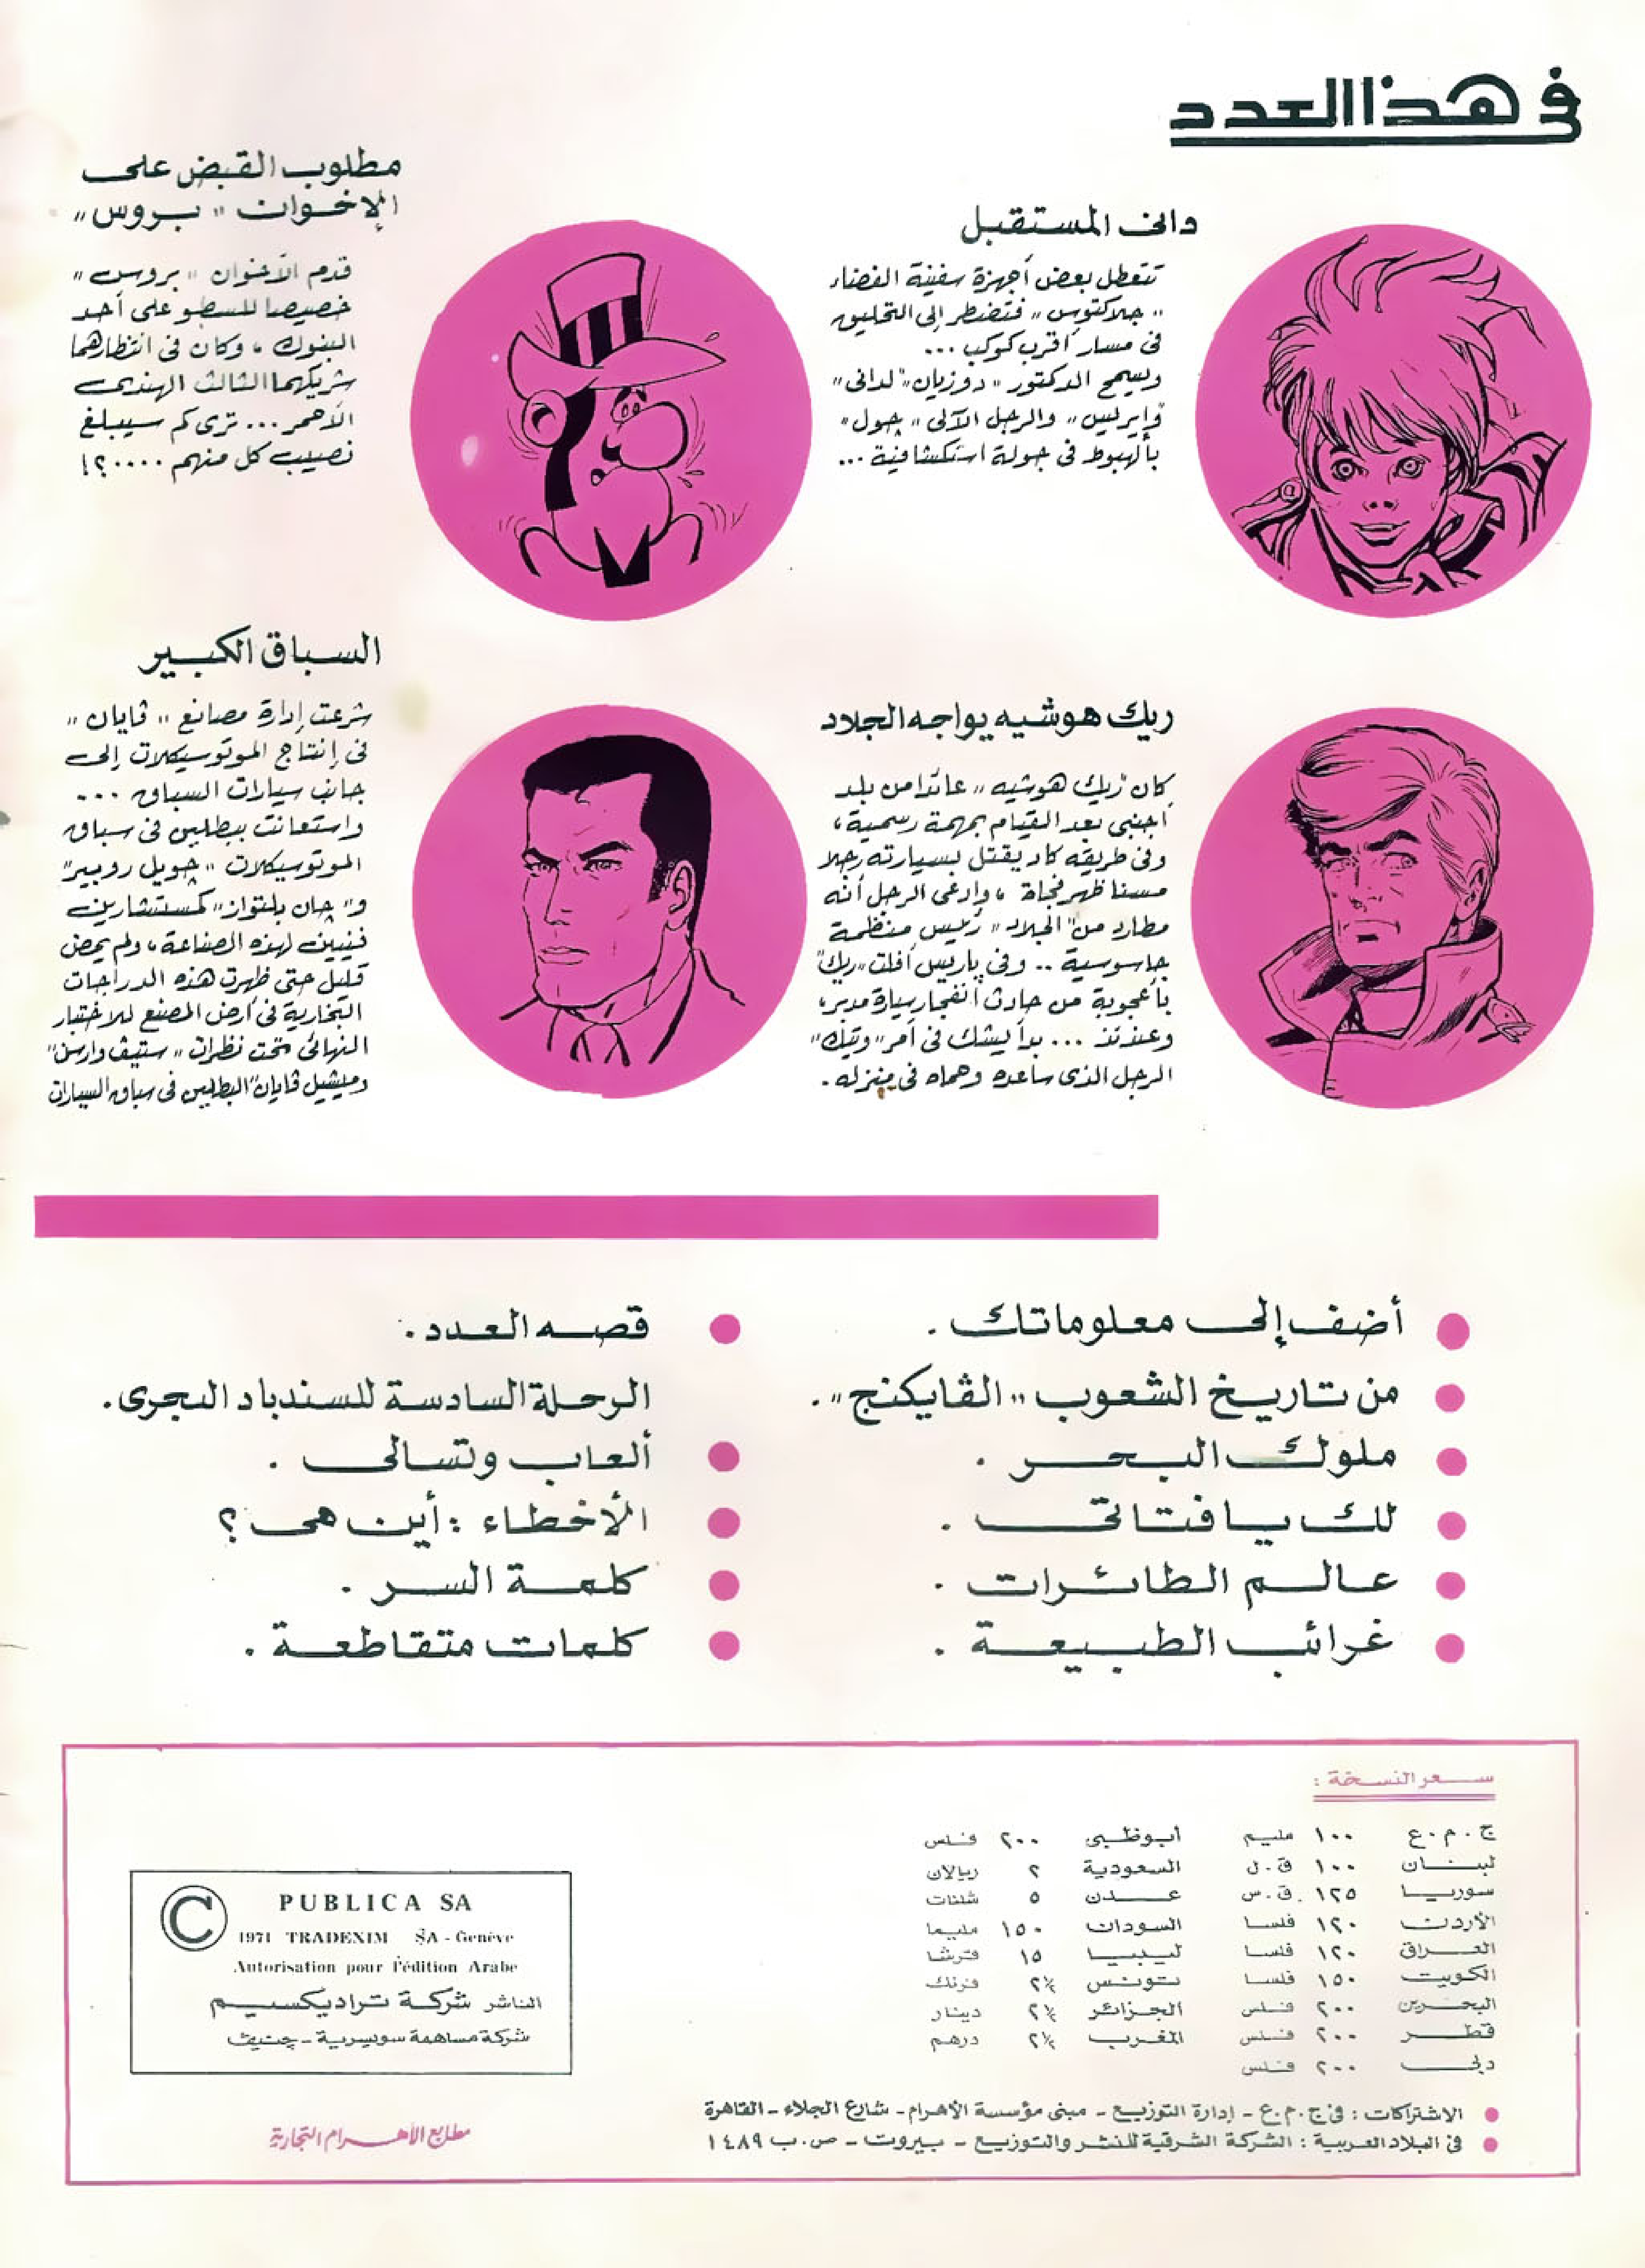 في هذا العدد
دانى المستقبل
تتعطل بعض أجهزة سفينة الفضاء
"جلاكتوس" فتضطر إلى التحليق
فى مسار أقرب كوكب ...
ويسمح الدكتور "دوزيان" "لدانى"
و"إيرليس" والرجل الآلى "چول"
بالهبوط فى جولة استكشافية ...
مطلوب القبض على
الإخوان "بروس"
قدم الأخوان "بروس"
خصيصا للسطو على أحد
البنوك ، وكان فى انتظارهما
شريكهما الثالث الهندى
الأحمر ... ترى كم سيبلغ
نصيب كل منهم ....؟!
ريك هوشيه يواجه الجلاد
كان "ريك هوشيه" عائدا من بلد
أجنبى بعد القيام بمهمة رسمية ،
وفى طريقه كاد يقتل بسيارته رجلا
مسنا ظهر فجأة ، وادعى الرجل أنه
مطارد من "الجلاد" رئيس منظمة
جاسوسية .. وفى پاريس أفلت "ريك"
بأعجوبة من حادث انفجار سيارة مدبر ،
وعندئذ ... بدأ يشك فى أمر "وتيك"
الرجل الذى ساعده وحماه فى منزله .
السباق الكبير
شرعت إدارة مصانع "ڤايان"
فى إنتاج الموتوسيكلات إلى
جانب سيارات السباق ...
واستعانت ببطلين فى سباق
الموتوسيكلات "چويل روبير"
و"چان بلتواز" كمستشارين
فنيين لهذه الصناعة ، ولم يمض
قليل حتى ظهرت هذه الدراجات
البخارية فى أرض المصنع للاختبار
النهائى تحت نظرات "ستيف وارسن"
وميشيل ڤايان" البطلين فى سباق السيارات
أضف إلى معلوماتك .
من تاريخ الشعوب "الڤايكنج" .
ملوك البحر .
لك يا فتاتى .
عالم الطائرات .
غرائب الطبيعة .
قصه العدد .
الرحلة السادسة للسندباد البحرى .
ألعاب وتسالى .
الأخطاء : أين هى ؟
كلمة السر .
كلمات متقاطعة .
سعر النسخة :
ج . م . ع ١٠٠ مليم
لبنان ١٠٠ ق . ل
سوريا ١٢٥ ق . س
الأردن ١٢٠ فلسا
العراق ١٢٠ فلسا
الكويت ١٥٠ فلسا
البحرين ٢٠٠ فلس
قطر ٢٠٠ فلس
دبى ٢٠٠ فلس
أبوظبى ٢٠٠ فلس
السعودية ٢ ريالان
عدن ٥ شلنات
السودان ١٥٠ مليما
ليبيا ١٥ قرشا
تونس ٢½ فرنك
الجزائر ٢½ دينار
المغرب ٢½ درهم
الاشتراكات : فى ج . م . ع - إدارة التوزيع - مبنى مؤسسة الأهرام - شارع الجلاء - القاهرة
فى البلاد العربية : الشركة الشرقية للنشر والتوزيع - بيروت - ص . ب ١٤٨٩
© PUBLICA SA
1971 TRADEXIM SA - Genève
Autorisation pour l'édition Arabe
الناشر شركة تراديكسيم
شركة مساهمة سويسرية - چنيڤ
مطابع الأهرام التجارية